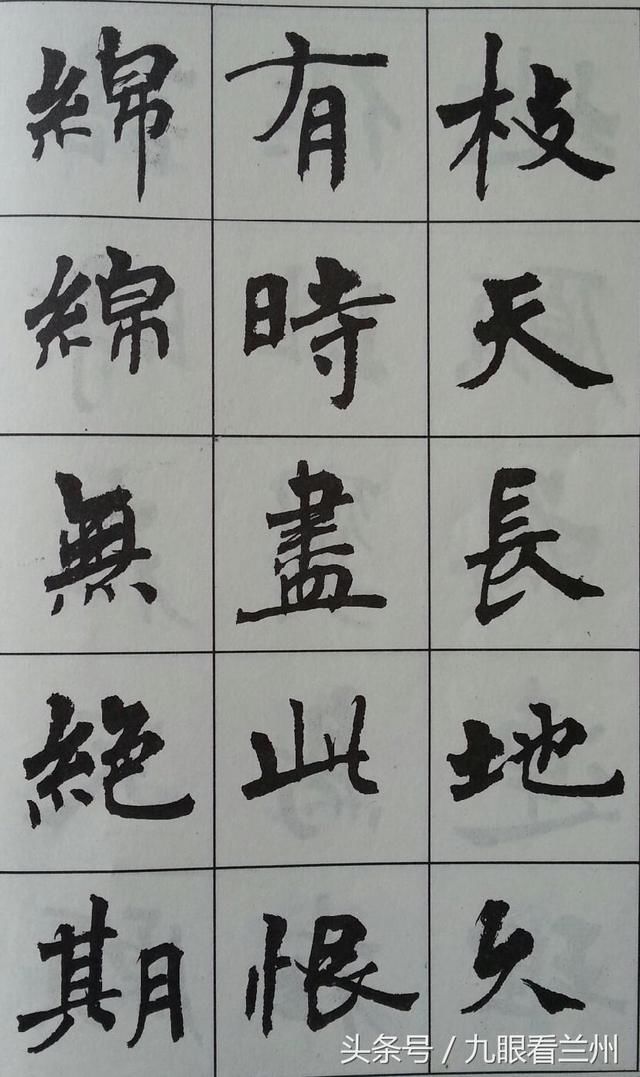 枝天長地久
有時盡此恨
綿綿無絕期
头条号／九眼看兰州